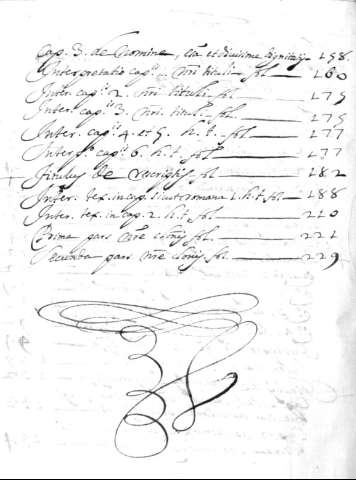 Cap. 3. de Nomine, et divisione dignitatis 158.
Interpretatio cap. nri tituli fol 160
Inter. cap. 2. nri tituli fol 175
Inter. cap. 3. nri. titul. fol 175
Inter. cap. 4. et 5. h. t. fol 177
Inter. cap. 6. h. t. fol 177
Titulus de fol 182
Inter. tex. in cap. 1. h. t. fol 188
Inter. tex. in cap. 2. h. t. fol 210
Prima pars fol. 221
Secunda pars fol 229